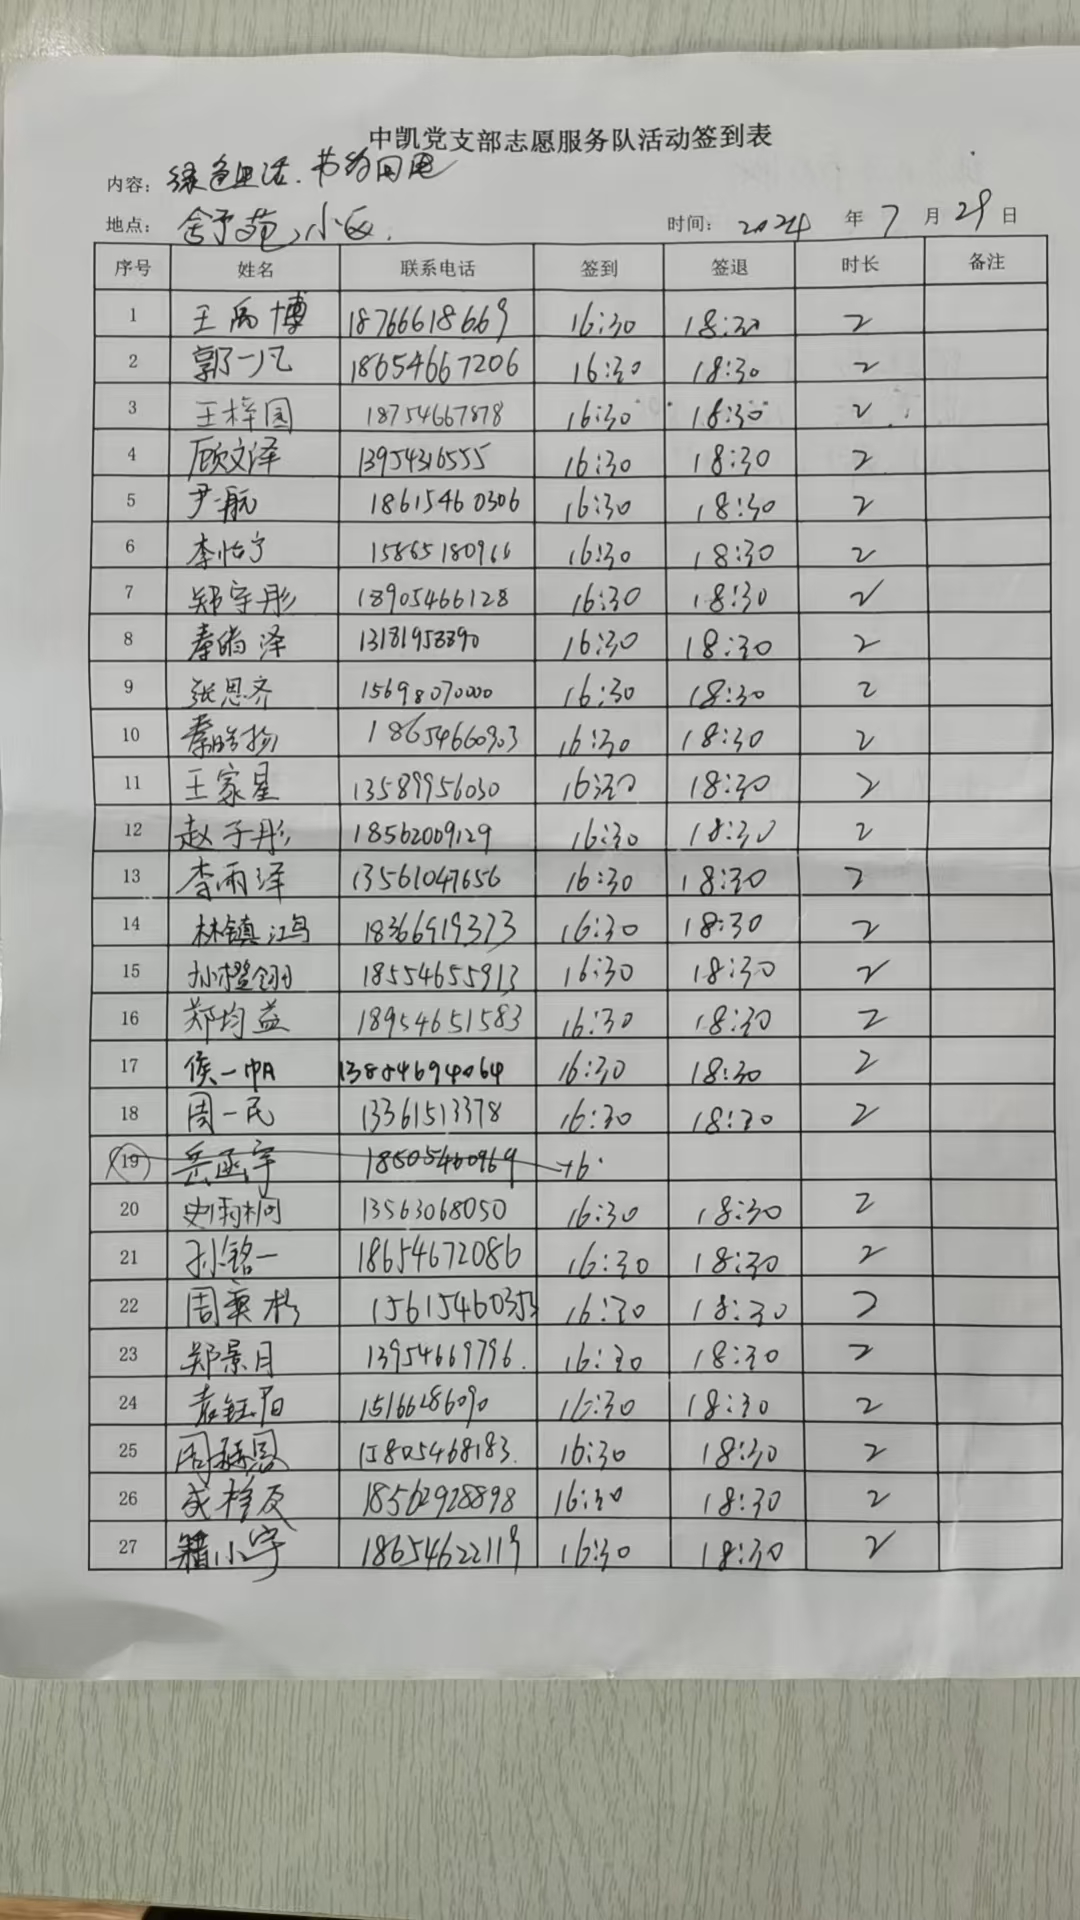 中凯党支部志愿服务队活动签到表
内容：绿色生活.节约用电
地点：舒苑小区. 时间：2024 年 7 月 29 日
序号 姓名 联系电话 签到 签退 时长 备注
1 王禹博 18766618669 16:30 18:30 2
2 郭一凡 18654667206 16:30 18:30 2
3 王梓园 18754667878 16:30 18:30 2
4 顾文泽 13954316555 16:30 18:30 2
5 尹航 18615460306 16:30 18:30 2
6 李怡宁 15865180966 16:30 18:30 2
7 郑宇彤 18905466128 16:30 18:30 2
8 秦皓泽 13181953390 16:30 18:30 2
9 张恩齐 15698070000 16:30 18:30 2
10 秦皓扬 18654660903 16:30 18:30 2
11 王家星 13589956030 16:30 18:30 2
12 赵子彤 18562009129 16:30 18:30 2
13 李雨泽 13561047656 16:30 18:30 2
14 林镇鸿 18366919373 16:30 18:30 2
15 孙橙翎 18554655913 16:30 18:30 2
16 郑均益 18954651583 16:30 18:30 2
17 侯一帆 13854694064 16:30 18:30 2
18 周一民 13361513378 16:30 18:30 2
19 岳函宇 18505460969 16
20 史雨桐 13563068050 16:30 18:30 2
21 孙铭一 18654672086 16:30 18:30 2
22 周奕彤 15615460353 16:30 18:30 2
23 郑景月 13954669796. 16:30 18:30 2
24 袁钰阳 15166286090 16:30 18:30 2
25 周 15805468183. 16:30 18:30 2
26 成梓辰 18562928898 16:30 18:30 2
27 籍小宇 18654622119 16:30 18:30 2